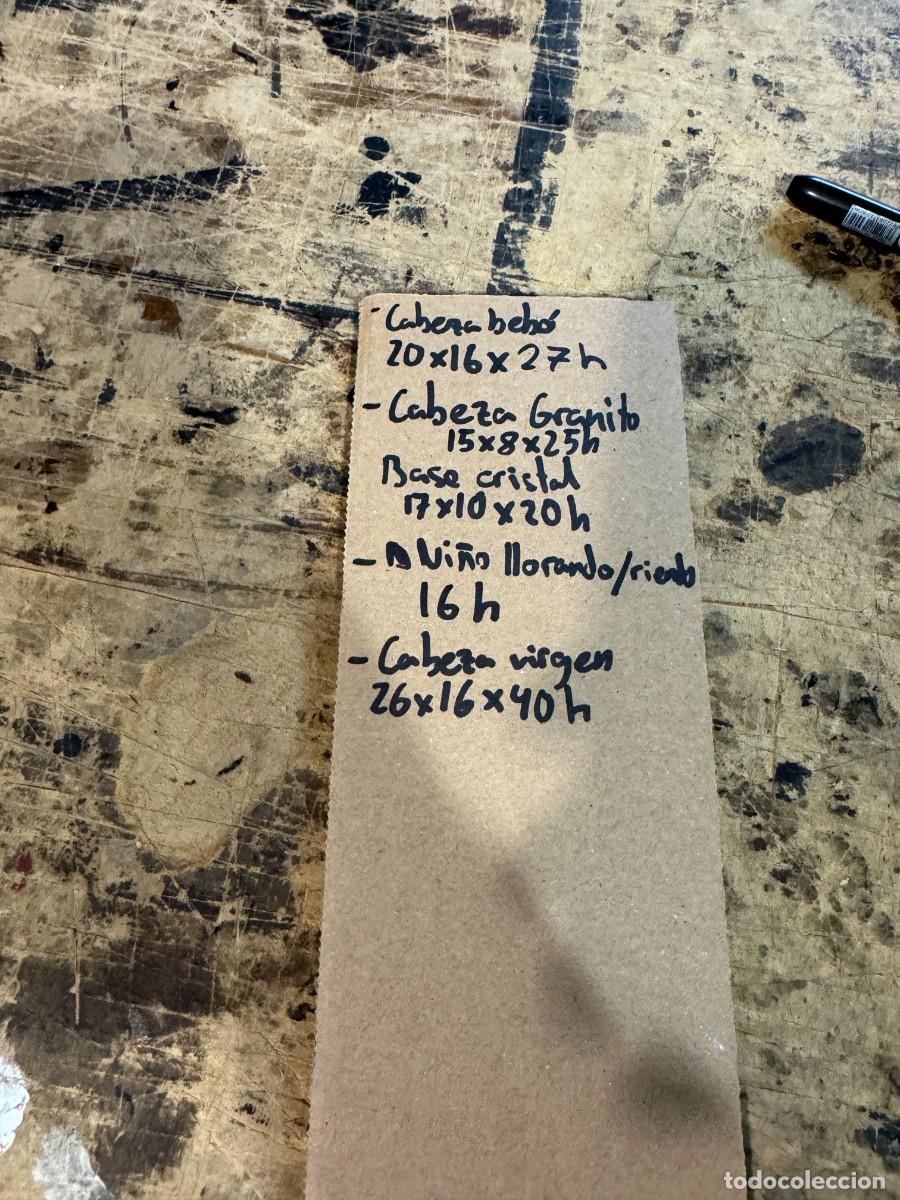 - Cabeza bebé
20x16x27h
- Cabeza Granito
15x8x25h
Base cristal
17x10x20h
- Niño llorando/riendo
16h
- Cabeza virgen
26x16x40h
todocoleccion